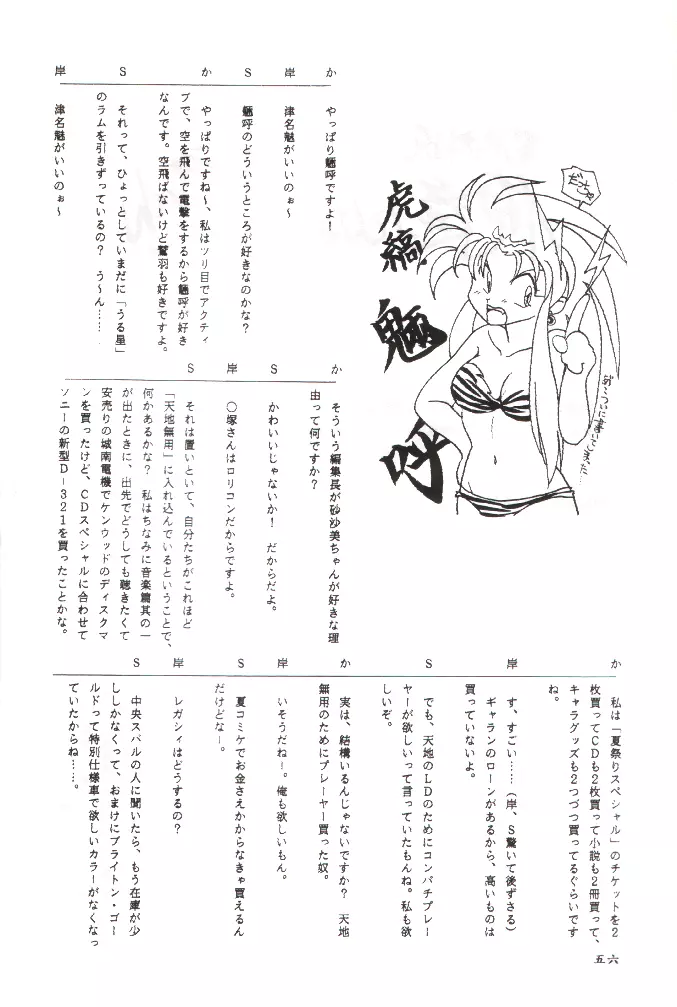 だっちゃ
虎縞魎呼
か
やっぱり魎呼ですよ！
岸
津名魅がいいのぉ～
S
魎呼のどういうところが好きなのかな？
か
やっぱりですね～、私はツリ目でアクティ
ブで、空を飛んで電撃をするから魎呼が好き
なんです。空飛ばないけど鷲羽も好きですよ。
S
それって、ひょっとしていまだに「うる星」
のラムを引きずっているの？　う～ん……．
岸
津名魅がいいのぉ～
か
そういう編集長が砂沙美ちゃんが好きな理
由って何ですか？
S
かわいいじゃないか！　だからだよ。
岸
○塚さんはロリコンだからですよ。
S
それは置いといて、自分たちがこれほど
「天地無用」に入れ込んでいるということで、
何かあるかな？　私はちなみに音楽篇其の一
が出たときに、出先でどうしても聴きたくて
安売りの城南電機でケンウッドのディスクマ
ンを買ったけど、CDスペシャルに合わせて
ソニーの新型D－321を買ったことかな。
か
私は「夏祭りスペシャル」のチケットを2
枚買ってCDも2枚買って小説も2冊買って、
キャラグッズも2つづつ買ってるぐらいです
ね。
岸
す、すごい……（岸、S驚いて後ずさる）
ギャランのローンがあるから、高いものは
買っていないよ。
S
でも、天地のLDのためにコンパチプレー
ヤーが欲しいって言っていたもんね。私も欲
しいぞ。
か
実は、結構いるんじゃないですか？　天地
無用のためにプレーヤー買った奴。
岸
いそうだねー。俺も欲しいもん。
S
夏コミケでお金さえかからなきゃ買えるん
だけどなー。
岸
レガシィはどうするの？
S
中央スバルの人に聞いたら、もう在庫が少
ししかなくって、おまけにブライトン・ゴー
ルドって特別仕様車で欲しいカラーがなくなっ
ていたからね……。
五六